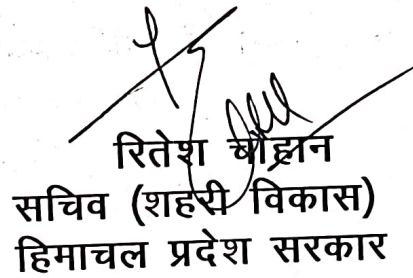 रितेश चौहान
सचिव (शहरी विकास)
हिमाचल प्रदेश सरकार